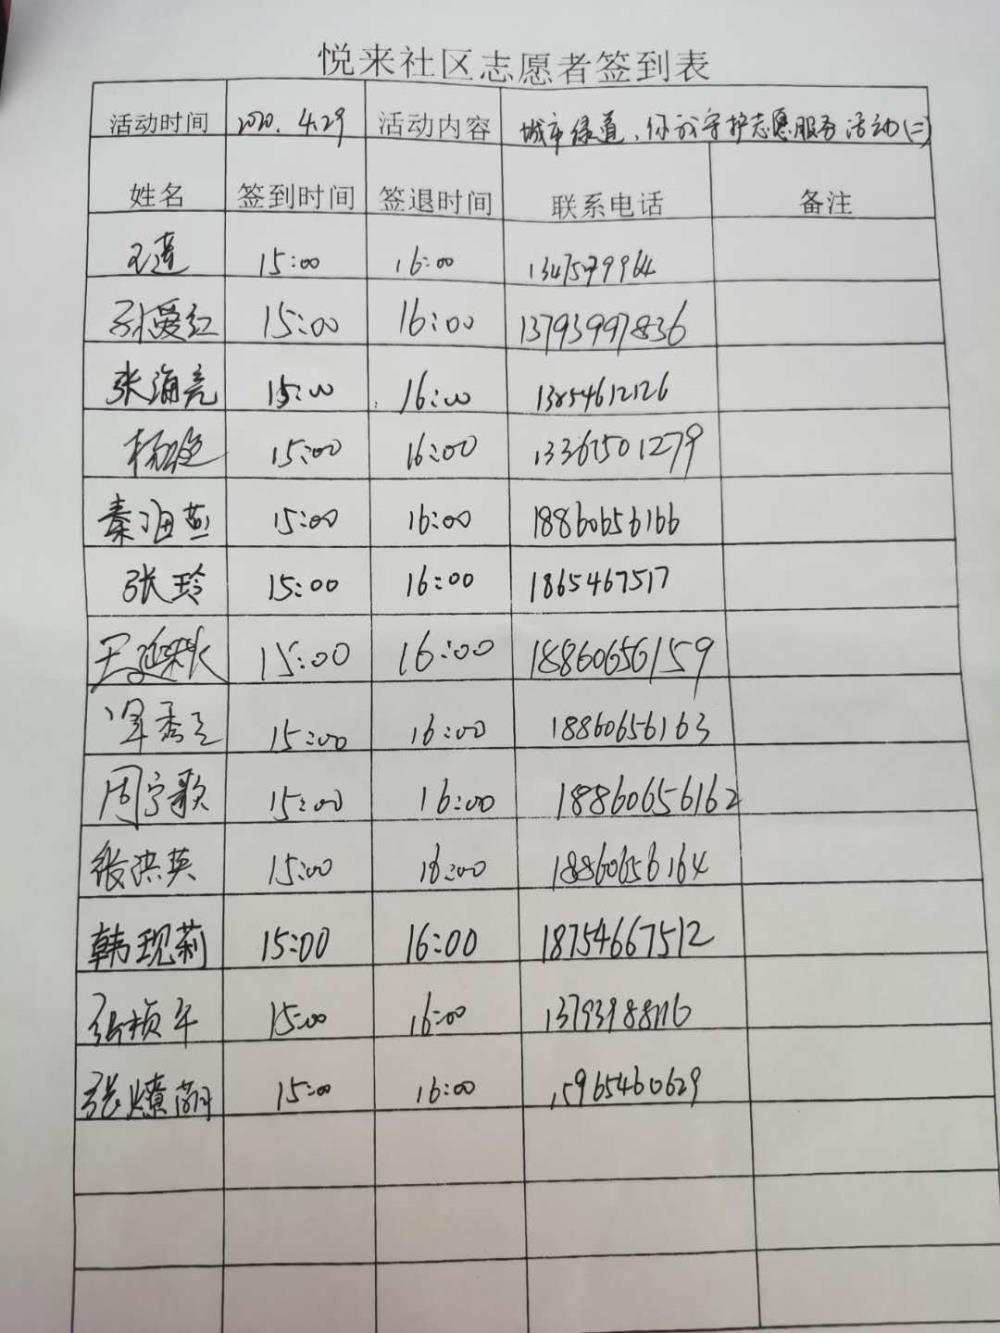 悦来社区志愿者签到表
活动时间 2020.4.29 活动内容 城市绿道、你我守护志愿服务活动(二)
姓名 签到时间 签退时间 联系电话 备注
王莲 15:00 16:00
孙爱红 15:00 16:00 13793997836
张海亮 15:00 16:00 13854612126
杨 15:00 16:00 13361501279
秦海燕 15:00 16:00 18860656166
张玲 15:00 16:00 1865467517
王延秋 15:00 16:00 18860656159
秀 15:00 16:00 18860656163
周宁歌 15:00 16:00 18860656162
张洪英 15:00 16:00 18860656164
韩现莉 15:00 16:00 18754667512
张桢年 15:00 16:00
张燎 15:00 16:00 15965460629